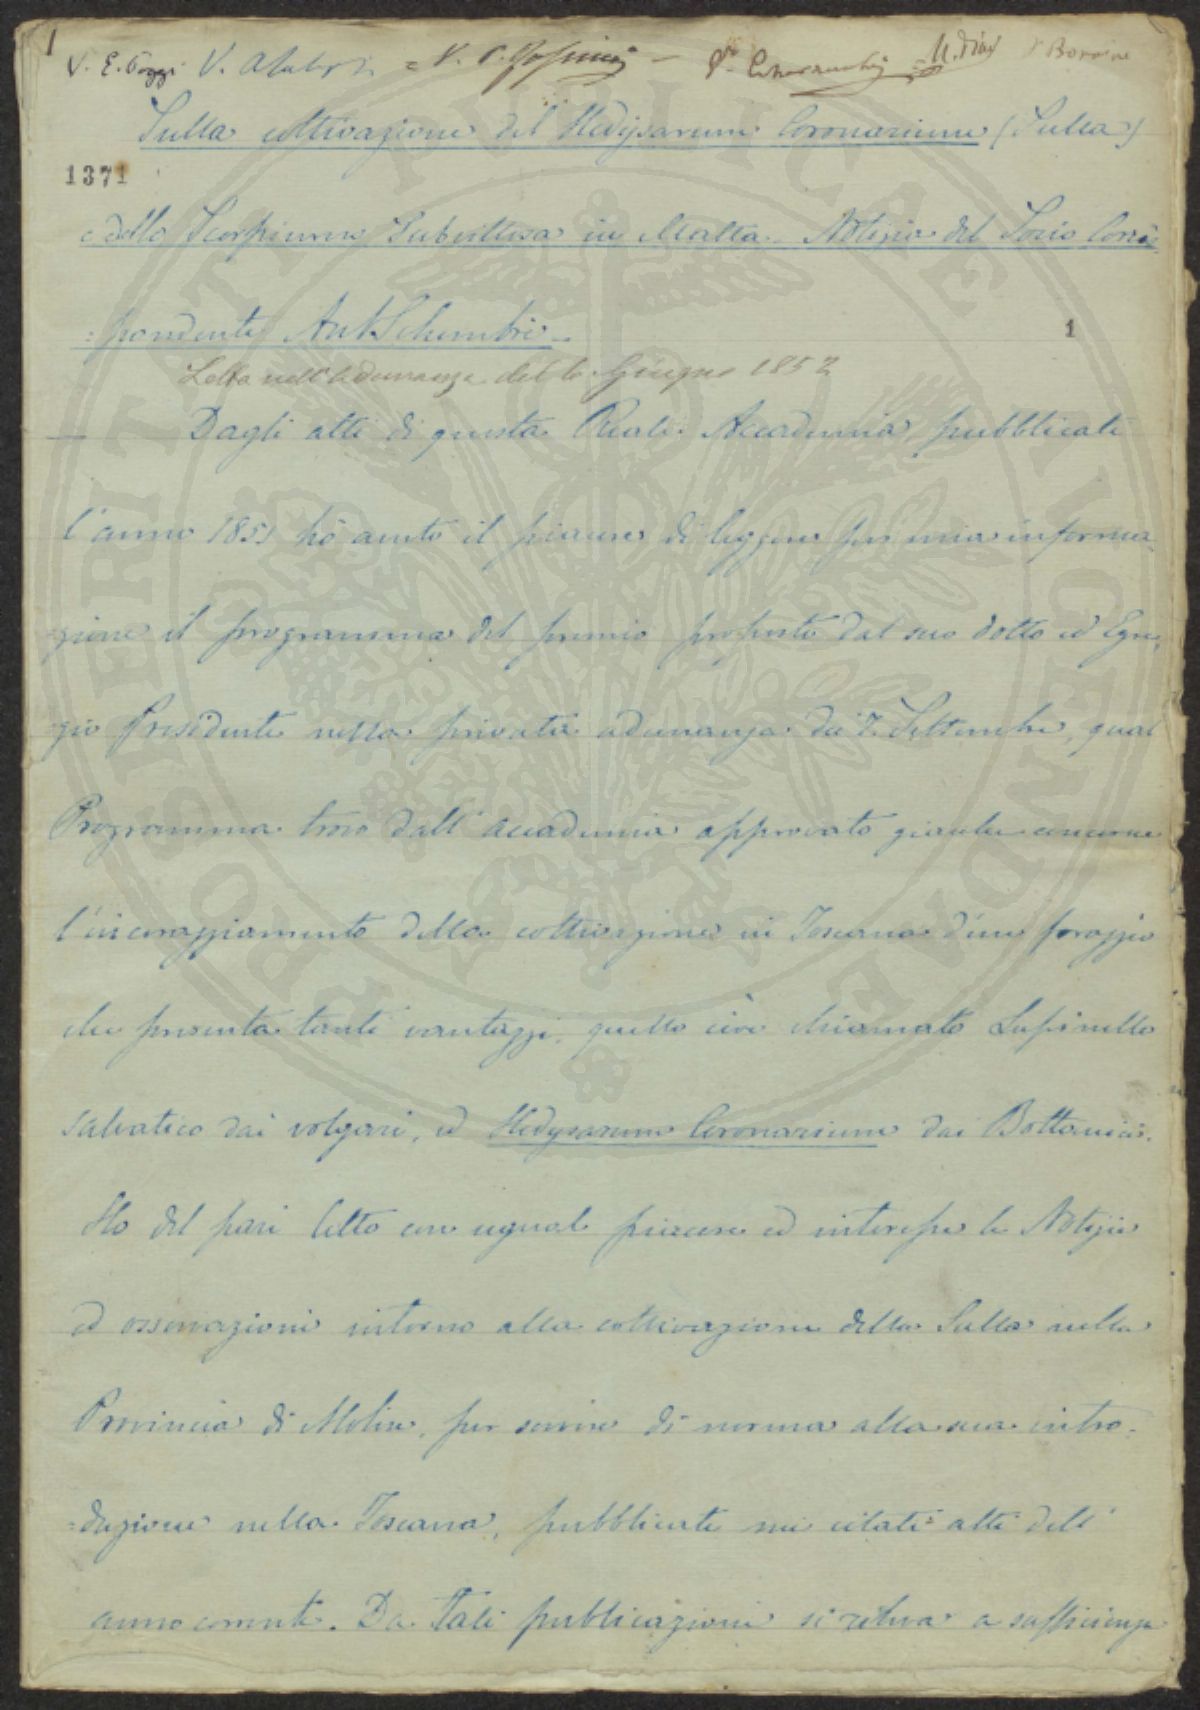 1
V. E. Poggi V. = V. - V. Bonaini
Sulla coltivazione del Hedysarum Coronarium (Sulla)
1371
e dello Scorpiurus Subvillosa in Malta. Notizia del Socio Corris=
=pondente Ant Schembri.
1
Letta nell'Adunanza del 6 Giugno 1852
Dagli atti di questa Reale Accademia pubblicati
l'anno 1851 hò auuto il piacere di leggere per mia informa=
zione il programma del premio proposto dal suo dotto ed Egre=
gio Presidente nella privata adunanza dei 7. Settembre, qual
Programma trovo dall'accademia approvato giacche concerne
l'incoraggiamento della coltivazione in Toscana d'un foraggio
che presenta tanti vantaggi, quello cioè chiamato Lupinello
salvatico dai volgari, ed Hedysarum Coronarium dai Bottanici.
Ho del pari letto con ugual piacere ed interesse le Notizie
ed osservazioni intorno alla coltivazione della Sulla nella
Provincia di Molise, per servire di norma alla sua intro=
=duzione nella Toscana, pubblicate nei citati atti dell'
anno corrente. Da tali pubblicazioni si rileva a sufficienza